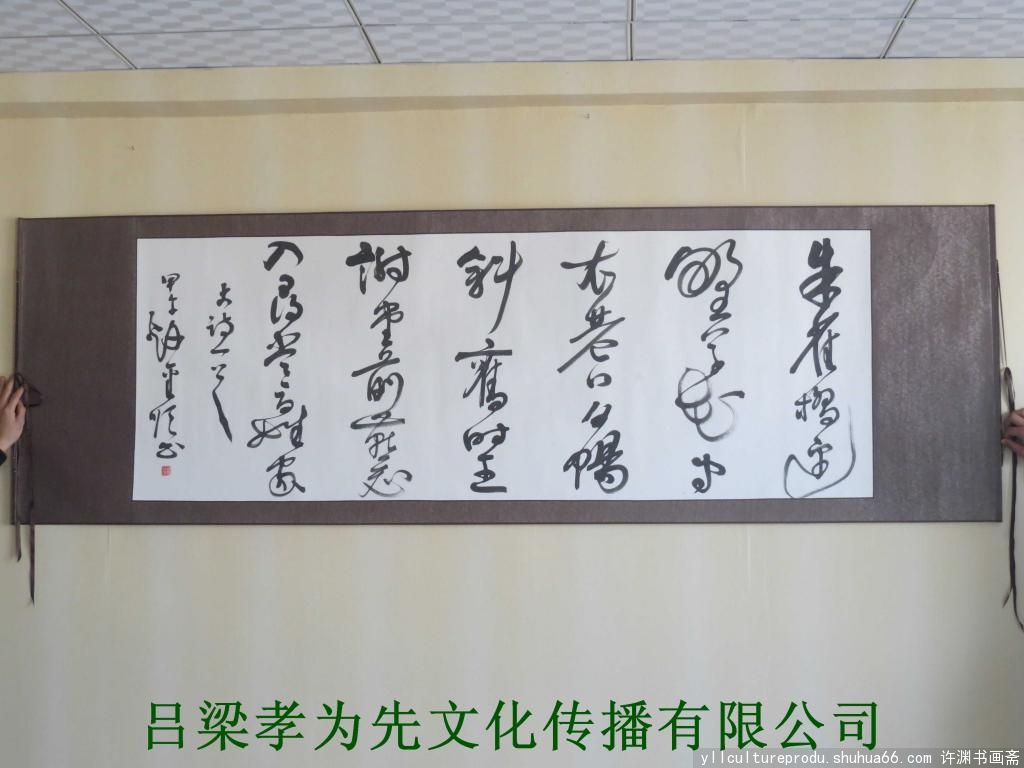 朱雀橋邊
野草花烏
衣巷口夕陽
斜舊時王
謝堂前燕飛
入尋常百姓家
詩一首
甲午 書
吕梁孝为先文化传播有限公司
yllcultureprodu.shuhua66.com 许渊书画斋